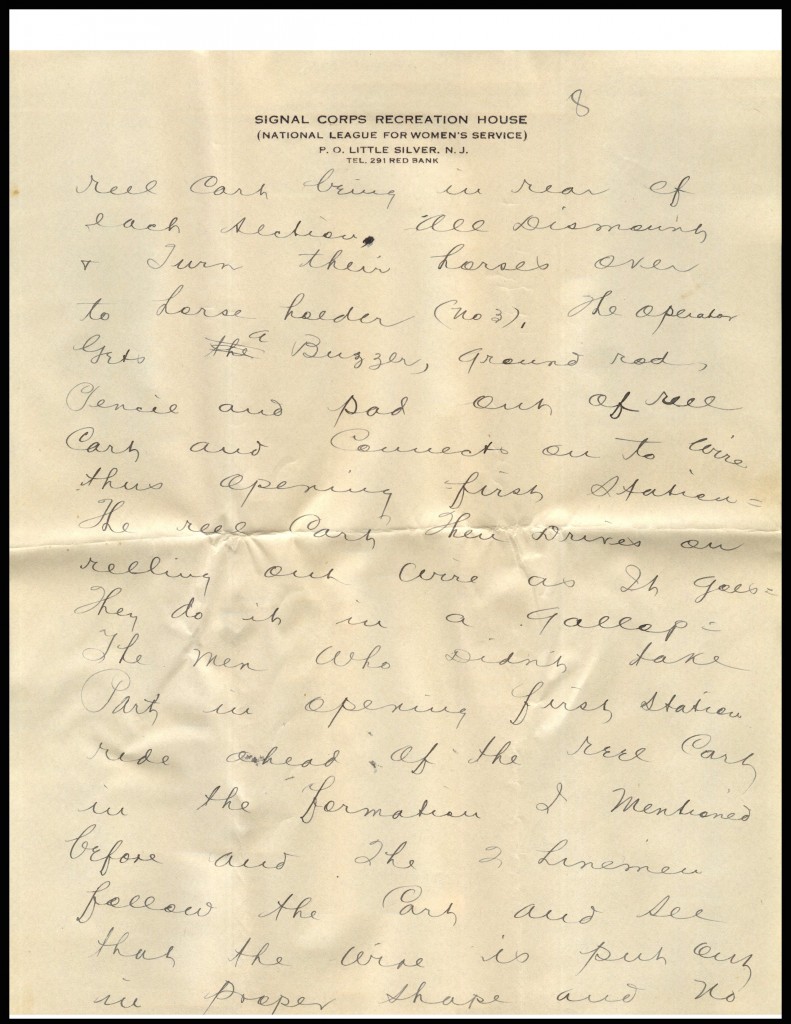 8
SIGNAL CORPS RECREATION HOUSE
(NATIONAL LEAGUE FOR WOMEN'S SERVICE)
P. O. LITTLE SILVER, N. J.
TEL. 291 RED BANK
reel Cart being in rear of
each section. All Dismount
& Turn their horses over
to horse holder (No 3). The operator
Gets the a Buzzer, ground rod,
Pencil and pad out of reel
Cart and Connects on to wire
thus opening first Station=
The reel Cart Then Drives on
relling out wire as It goes=
They do it in a Gallop=
The men Who Didn't take
Part in opening first Station
ride ahead of the reel Cart
in the formation I Mentioned
before and The 2 Linemen
follow the Cart and See
that the wire is put out
in proper shape and No